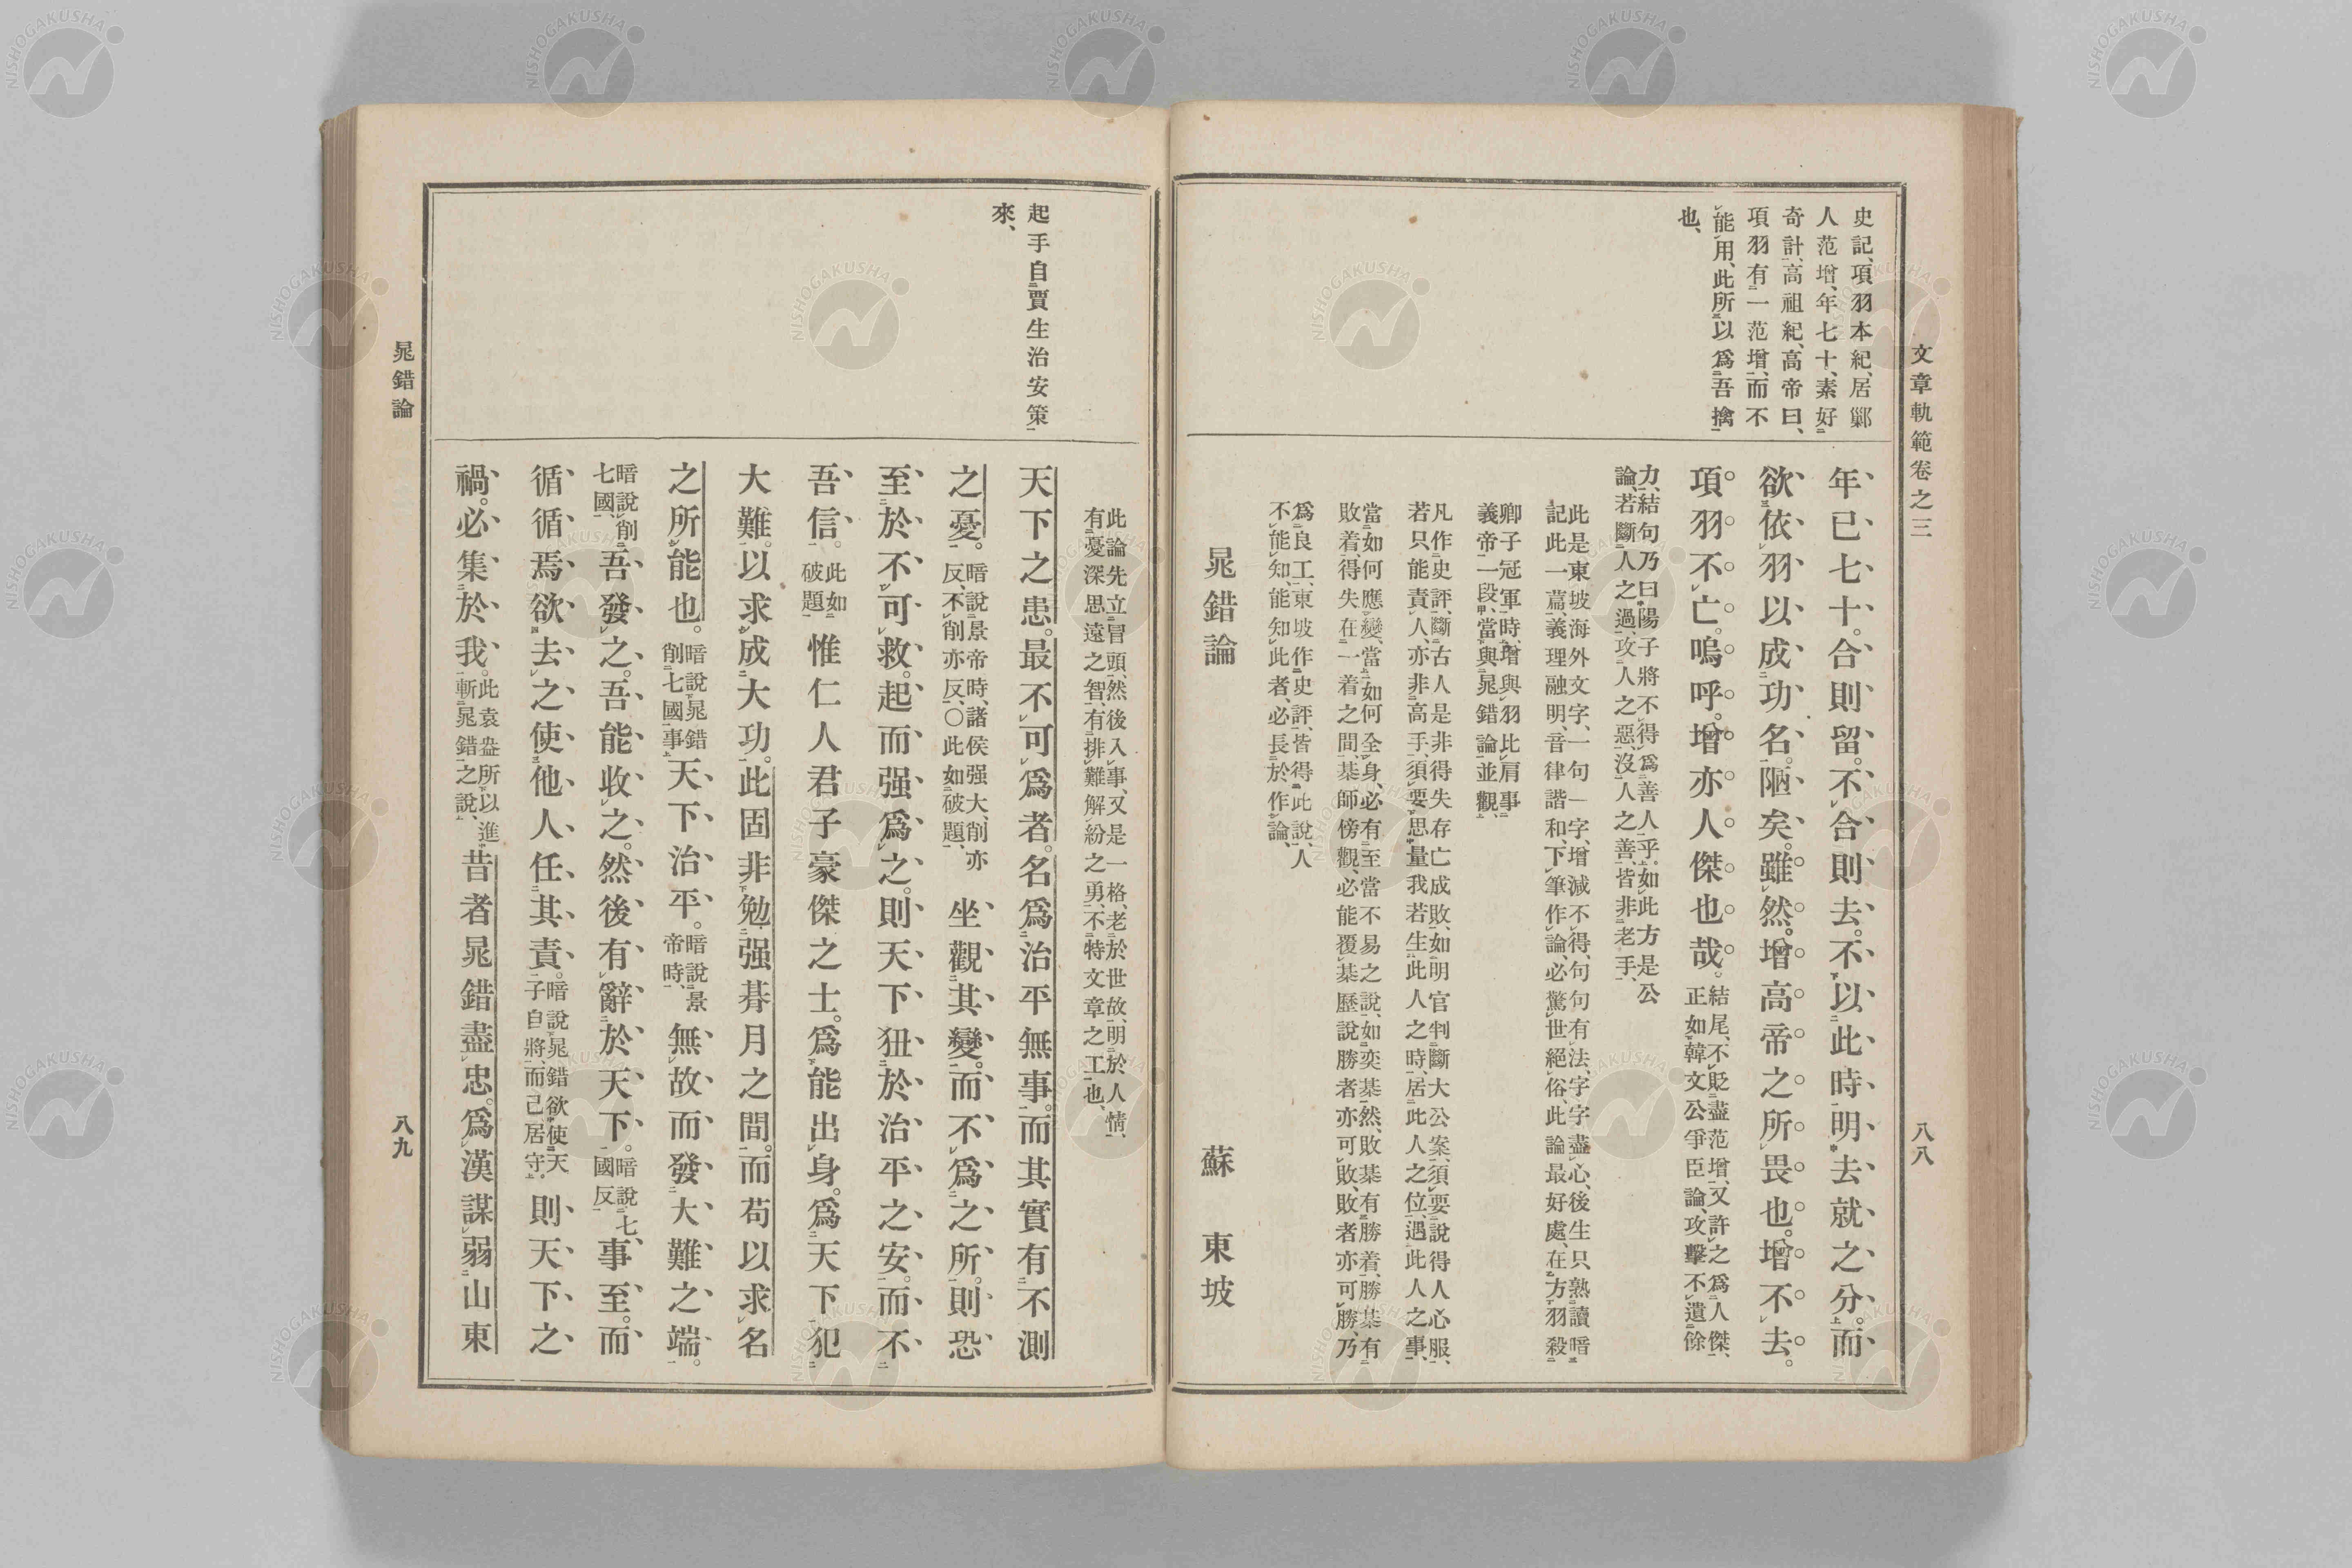 文章軌範卷之三
八八
史記、項羽本紀、居鄛
人范增、年七十、素好
奇計、高祖紀、高帝曰、
項羽有一范增、而不
能用、此所以爲吾擒
也、
年已七十。合則留。不合則去。不以此時明去就之分。而
欲依羽以成功名。陋矣。雖然。增高帝之所畏也。增不去。
項羽不亡。嗚呼。增亦人傑也哉。
結尾、不貶盡范增、又許之爲人傑、
正如韓文公爭臣論、攻擊不遺餘
力、結句乃曰陽子將不得爲善人乎、如此方是公
論、若斷人之過、攻人之惡、沒人之善、皆非老手、
此是東坡海外文字、一句一字、增減不得、句句有法、字字盡心、後生只熟讀暗
記此一篇、義理融明、音律諧和、下筆作論、必驚世絕俗、此論最好處、在方羽殺
卿子冠軍時、增與羽比肩事
義帝一段、當與晁錯論並觀、
凡作史評、斷古人是非得失存亡成敗、如明官判斷大公案、須要說得人心服、
若只能責人、亦非高手、須要思量我若生此人之時、居此人之位、遇此人之事、
當如何應變、當如何全身、必有至當不易之說、如奕棊然、敗棊有勝着、勝棊有
敗着、得失在一着之間、棊師傍觀、必能覆棊歷說勝者亦可敗、敗者亦可勝、乃
爲良工、東坡作史評、皆得此說、人
不能知、能知此者、必長於作論、
晁錯論 蘇東坡
起手自賈生治安策
來、
此論先立冒頭、然後入事、又是一格、老於世故、明於人情、
有憂深思遠之智、有排難解紛之勇、不特文章之工也、
天下之患。最不可爲者。名爲治平無事。而其實有不測
之憂。
暗說景帝時、諸侯强大、削亦
反、不削亦反、〇此如破題、
坐觀其變。而不爲之所。則恐
至於不可救。起而强爲之。則天下狃於治平之安。而不
吾信。
此如
破題
惟仁人君子豪傑之士。爲能出身。爲天下犯
大難。以求成大功。此固非勉强朞月之間。而苟以求名
之所能也。
暗說晁錯
削七國事
天下治平。
暗說景
帝時、
無故而發大難之端。
暗說削
七國、
吾發之。吾能收之。然後有辭於天下。
暗說七
國反
事至。而
循循焉欲去之使他人任其責。
暗說晁錯欲使天
子自將、而己居守、
則天下之
禍。必集於我。
此袁盎所以進
斬晁錯之說、
昔者晁錯盡忠。爲漢謀弱山東
晁錯論
八九
NISHOGAKUSHA